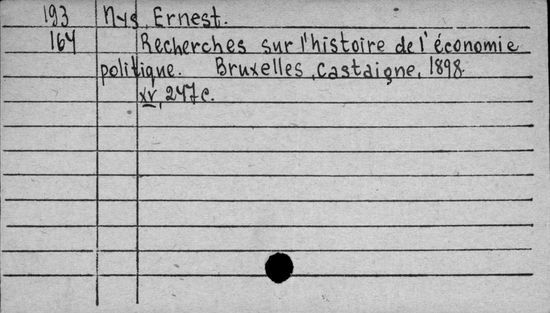 193 Nys, Ernest.
164 Recherches sur l'histoire de l'économie
politique. Bruxelles, Castaigne, 1898.
xv, 247 c.